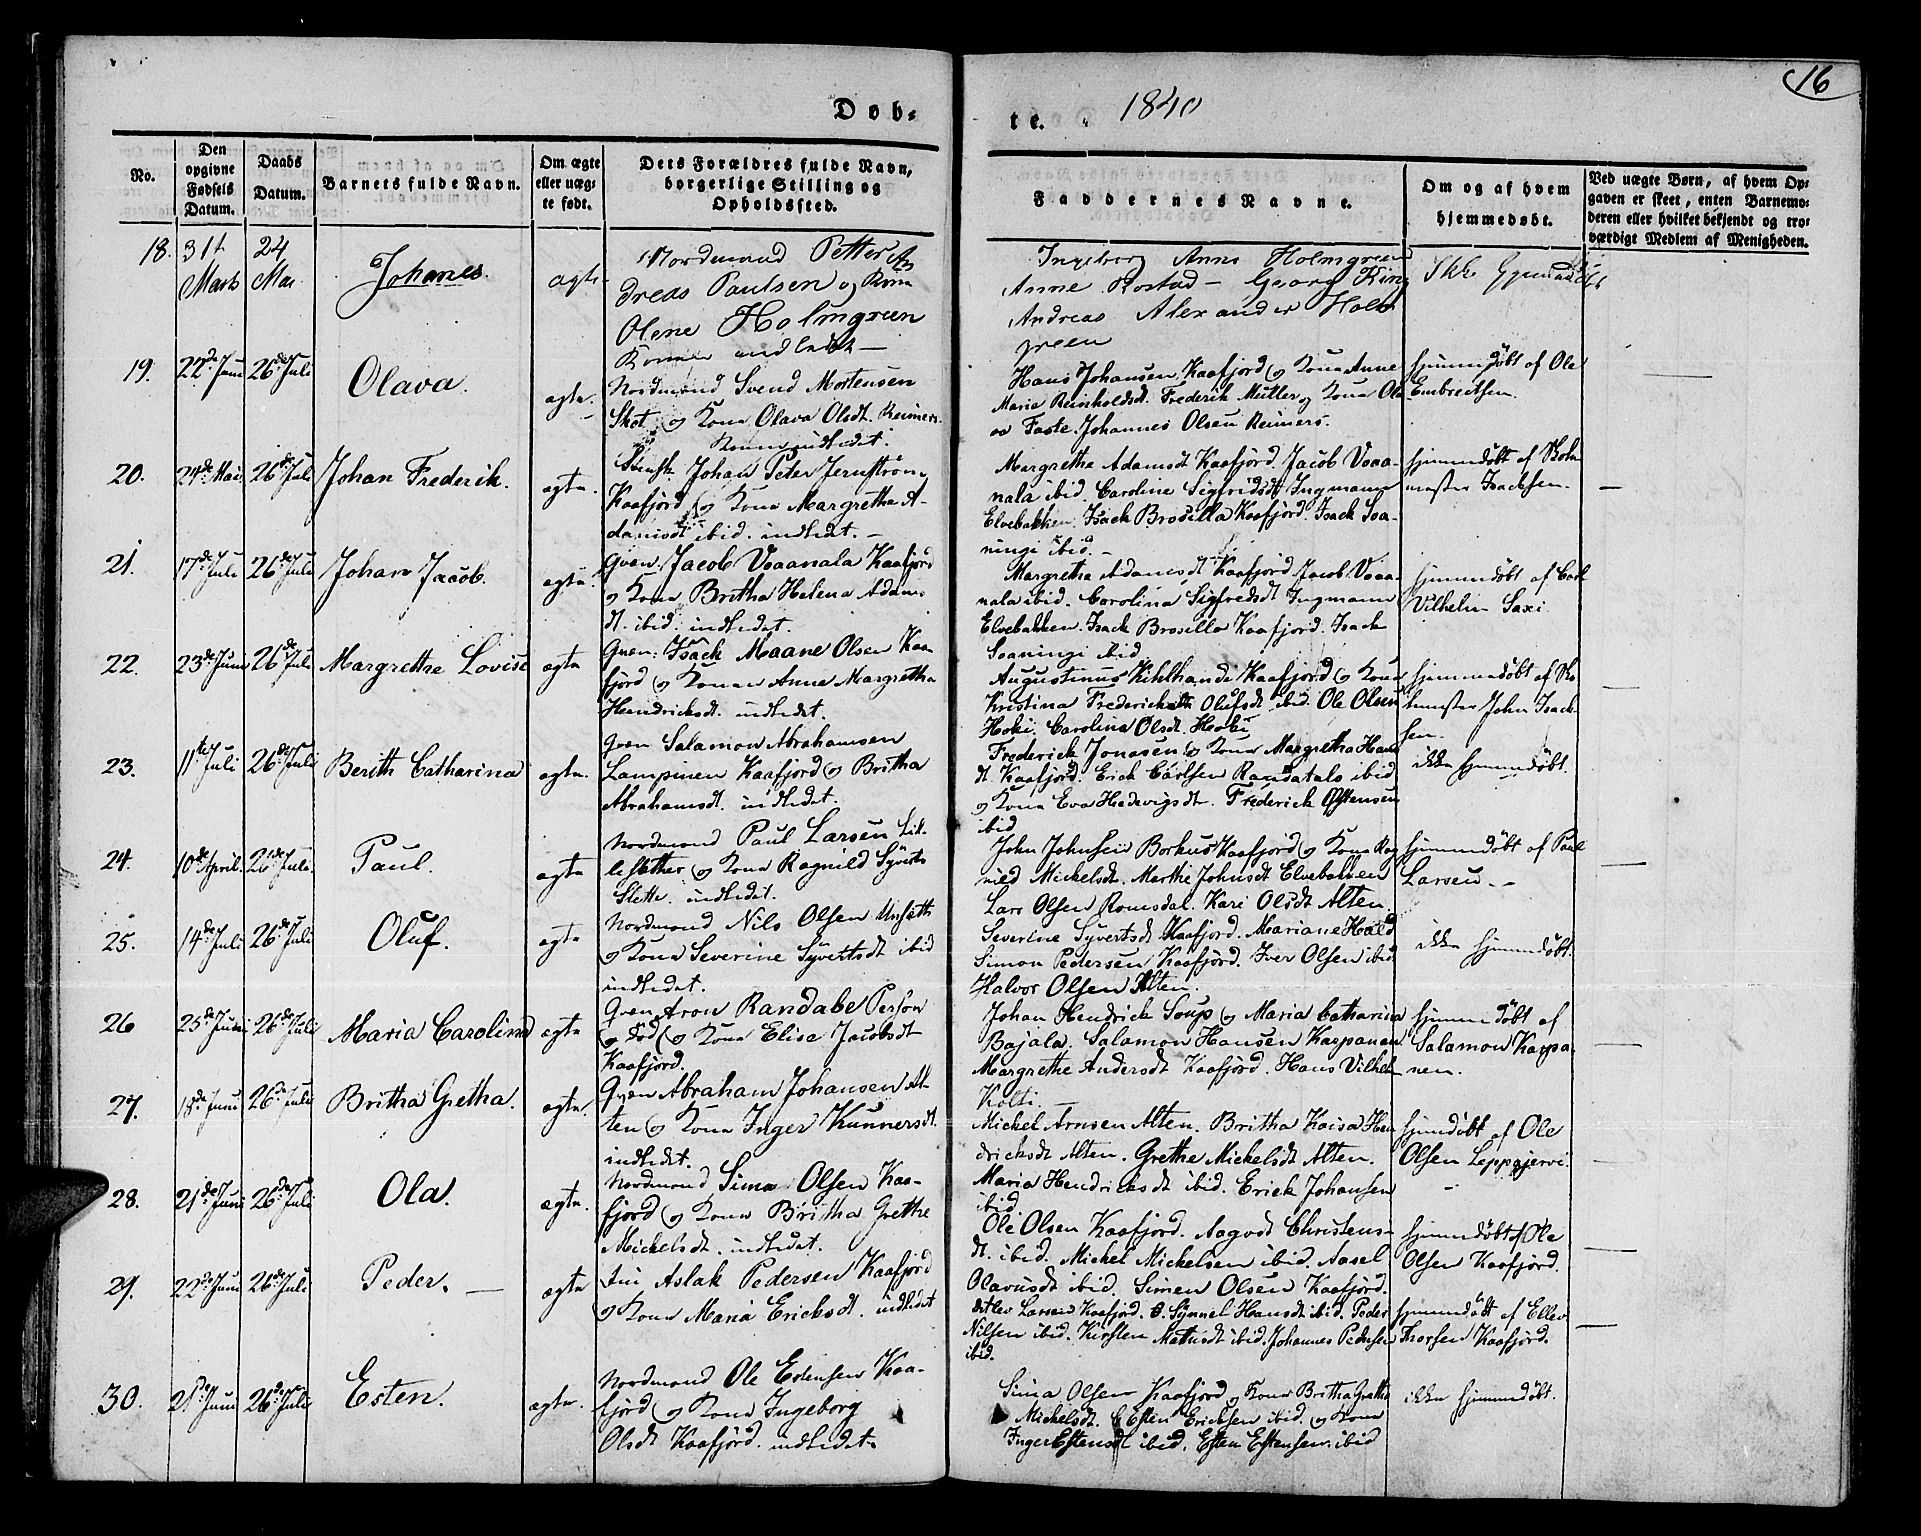 16
Døb-
te. 1840
No.
Den opgivne Fødsels Datum.
Daabs Datum.
Barnets fulde Navn.
Om ægte eller uæg- te født.
Dets Forældres fulde Navn, borgerlige Stilling og Opholdssted.
Faddernes Navne.
Om og af hvem hjemmedøbt.
Ved uægte Børn, af hvem Op- gaven er skeet, enten Barnemo- deren eller hvilket bekjendt og tro- værdigt Medlem af Menigheden.
18. 31t Marts 24 Mai Johanes ægte
Nordmand Petter An
dreas Paulsen og Kone
Olene Holmgreen
Konen indledet —
Ingeborg Anne Holmgreen
Anne Rostad — Georg King
Andreas Alexander Holm
green
Ikke hjemmedøbt
19. 22de Juni 26de Juli Olava. ægte.
Nordmand Svend Mortensen
og Kone Olava Olsdt. Reimers.
Konen indledet.
Hans Johansen Kaafjord og Kone Anne
Maria Reinholdsdt. Frederik Müller og Kone Ola
Johannes Olsen Reimers.
hjemmedøbt af Ole
Embreitsen.
20. 24de Mai 26de Juli Johan Frederik. ægte.
Svensk Johan Peter Jernstrøm,
Kaafjord og Kone Margretha A-
damsdt ibid. indledt. —
Margretha Adamsdt Kaafjord. Jacob Vaaa-
nala ibid. Caroline Sigfridsdt Ingmann
Elvebakken. Isack Brosilla Kaafjord. Isack Soa-
ningi ibid. —
hjemmedøbt af Skole
mester Isachsen. —
21. 17de Juli 26de Juli Johan Jacob. ægte.
Qven Jacob Vaaanala Kaafjord
og Kone Britha Helena Adams
dt. ibid. indledet.
Margretha Adamsdt Kaafjord. Jacob Vaaa-
nala ibid. Carolina Sigfredsdt Ingmann
Elvebakken. Isack Brosilla Kaafjord. Isack
Soaningi ibid
hjemmedøbt af Carl
Vilhelm Saxi.
22. 23de Juni 26de Juli Margrethe Lovise ægte
Qven: Isack Maane Olsen Kaa
fjord og Konen Anne Margretha
Hendricksdt. indledet.
Augustinus Kihlhande Kaafjord og Kone
Kristina Frederickke Olufsdt ibid. Ole Olsen
Hoki. Carolina Olsdt. Hoki
hjemmedøbt af Sko
lemester John Isack-
sen.
23. 11te Juli 26de Juli Berith Catharina ægte.
Qven Salamon Abrahamsen
Lampinen Kaafjord og Britha
Abrahamsdt. indledet.
Frederick Jonasen og Kone Margretha Hans
dt. Kaafjord. Erick Carlsen Randatals ibid
og Kone Eva Hedevigsdt. Frederick Estensen
ibid
ikke hjemmedøbt.
24. 10de April. 26de Juli. Paul. ægte
Nordmand Paul Larsen Lil-
lesletther og Kone Ragnild Syverts
Slette. indledet.
John Johnsen Borkus Kaafjord og Kone Rag
nied Mickelsdt. Marthe Johnsdt Elvebakken
Lars Olsen Romsdal. Kari Olsdt Alten.
hjemmedøbt af Paul
Larsen. —
25. 14de Juli 26de Juli Oluf. ægte
Nordmand Nils Olsen
og Kone Severine Syvertsdt ibid
indledet.
Severine Syvertsdt Kaafjord. Mariane Hald
Simon Pedersen Kaafjord. Iver Olsen ibid
Halvor Olsen Alten.
ikke hjemmedøbt.
26 25de Juni 26de Juli Maria Carolina ægte
Qven Aron Randabe Person
og Kone Elisa Jacobsdt
Kaafjord.
Johan Hendrick Soup og Maria Catharina
Bajala. Salamon Hansen Karpanen
Margrethe Andersdt Kaafjord. Hans Vilhelm
Kolti. —
hjemmedøbt af
Salamon Karpa-
nen.
27. 18de Juni 26de Juli Britha Gretha. ægte.
Qven Abraham Johansen Al-
ten og Kone Inger Kunnersdt.
indledet.
Mickel Arnsen Alten. Britha Kaisa Hen
dricksdt Alten. Grethe Mickelsdt Alten.
Maria Hendricksdt ibid. Erick Johansen
ibid.
hjemmedøbt af Ole
Olsen Leppajervi.
28. 21de Juni 26de Juli Ola. ægte.
Nordmand Simo Olsen Kaa-
fjord og Kone Britha Grethe
Mickelsdt. indledet.
Ole Olsen Kaafjord. Aagodt Christens-
dt. ibid. Mickel Mickelsen ibid. Aasel
Olavusdt ibid. Simen Olsen Kaafjord.
hjemmedøbt af Ole
Olsen Kaafjord.
29. 22de Juni 26de Juli Peder. — ægte
Aslak Pedersen Kaafjord
og Kone Maria Ericksdt. indledet
Larsen Kaafjord. Synnel Hansdt ibid. Peder
Nilsen ibid. Kirsten Mathisdt ibid. Johannes Pedersen
ibid.
hjemmedøbt af Ellev
Thorsen Kaafjord.
30. 21de Juni 26de Juli Esten. ægte.
Nordmand Ole Estensen Kaa-
fjord og Kone Ingeborg
Olsdt Kaafjord. indledet.
Sima Olsen Kaafjord og Kone Britha Gretha
Mickelsdt. Esten Ericksen ibid. og Kone
Inger Estensdt ibid. Esten Estensen ibid
ikke hjemmedøbt.